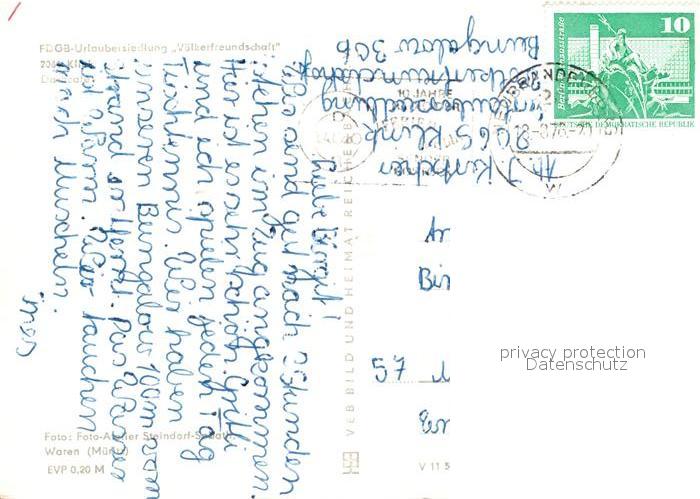 FDGB-Urlaubersiedlung „Völkerfreundschaft"
2065 Klink
Liebe Birgit!
Wir sind gut nach 2 Stunden
stehn im Zug angekommen.
Hier ist es sehr schön. Gritti
und ich spielen jeden Tag
Tischtennis. Wir haben
unseren Bungalow 100m vom
Strand entfernt. Das Wasser
ist warm. Wir tauchen
nach Muscheln.
Ines
Foto: Foto-Atelier Steindorf
Waren (Müritz)
EVP 0,20 M
VEB BILD UND HEIMAT REICHENBACH
V 11 5
Ab.
2065 Klink
Urlaubersiedlung
Völkerfreundschaft
Bungalow 30b
10 JAHRE
Berlin, Rathausstraße
10
DEUTSCHE DEMOKRATISCHE REPUBLIK
An
Bir
57
Er
privacy protection
Datenschutz